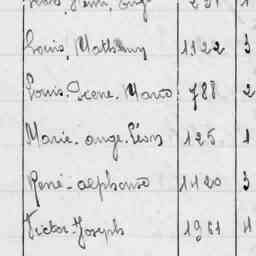 Louis, Mathurin 1122 3
Louis. Pierre. Marie 788 2
Marie. ange. Léon 125 1
René-alphonse 1420 3
Victor-Joseph 1961 4